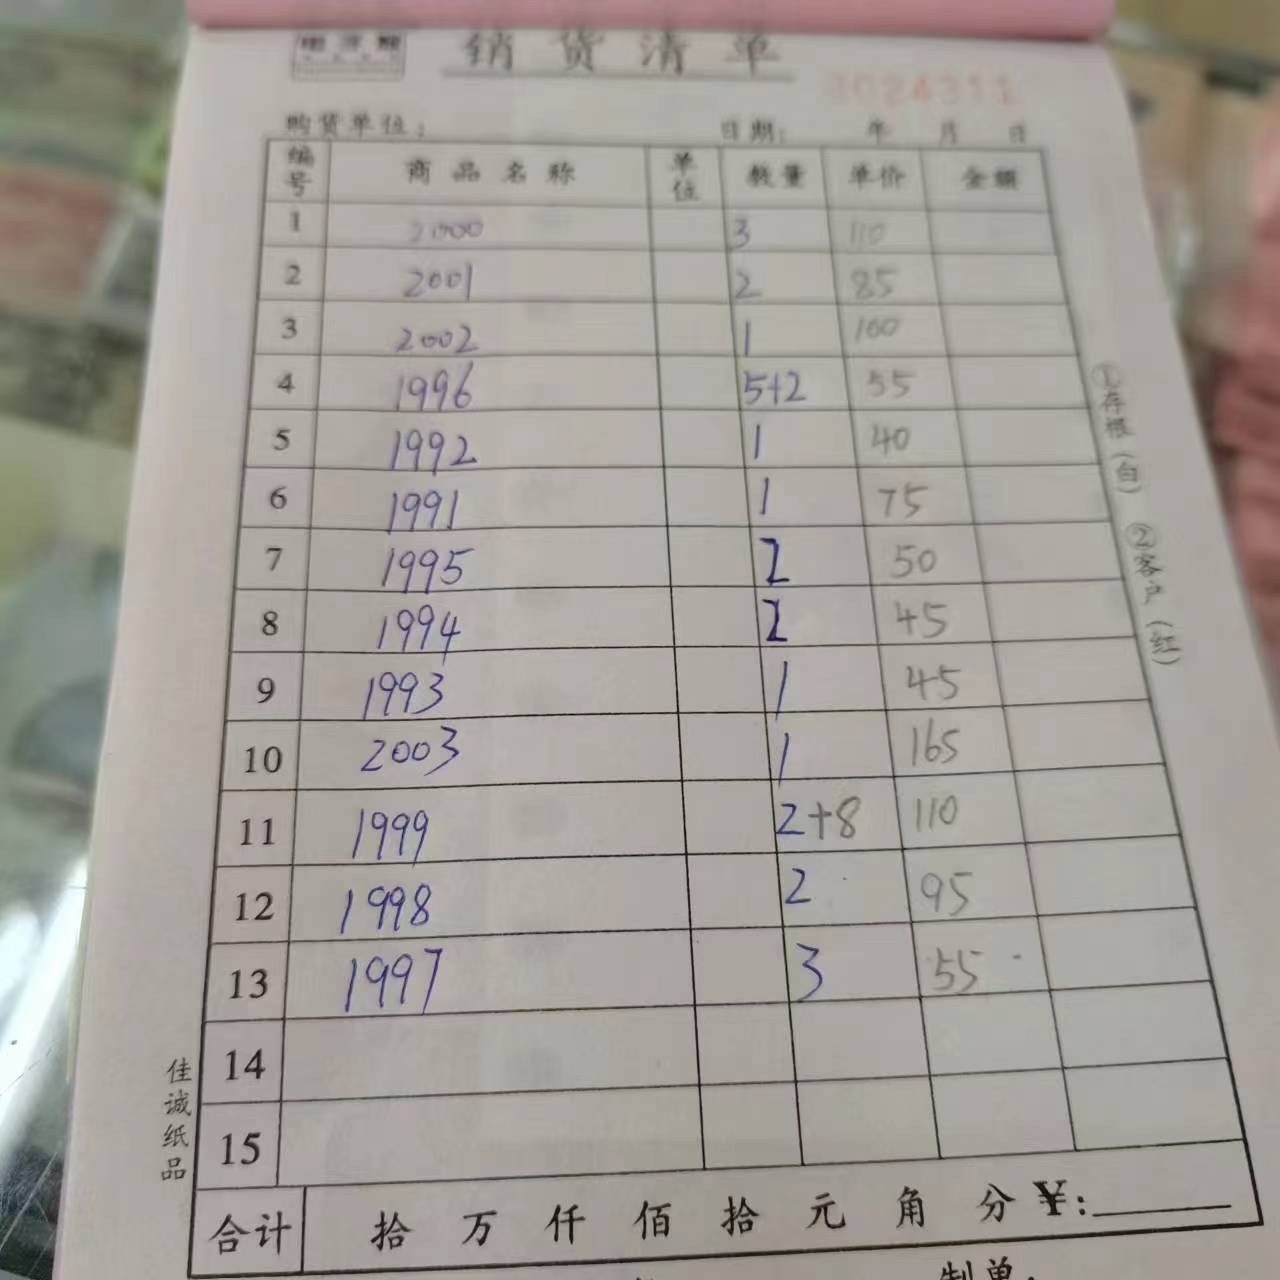 销货清单
3024311
购货单位： 日期： 年 月 日
编号 商品名称 单位 数量 单价 金额
1 2000 3 110
2 2001 2 85
3 2002 1 100
4 1996 5+2 55
5 1992 1 40
6 1991 1 75
7 1995 2 50
8 1994 2 45
9 1993 1 45
10 2003 1 165
11 1999 2+8 110
12 1998 2 95
13 1997 3 55
14
15
合计 拾 万 仟 佰 拾 元 角 分 ¥:
制单:
①存根(白) ②客户(红)
佳诚纸品